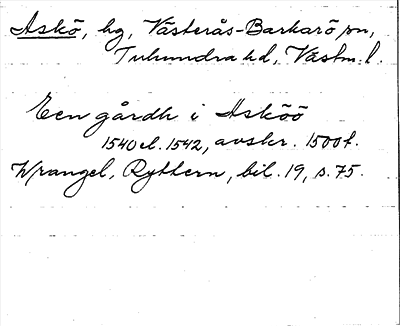 Askö, hg, Västerås-Barkarö sn,
Tuhundra hd, Västm. l.
Een gårdh i Asköö
1540 el. 1542, avskr. 1500t.
Wrangel, Ryttern, bil. 19, s. 75.